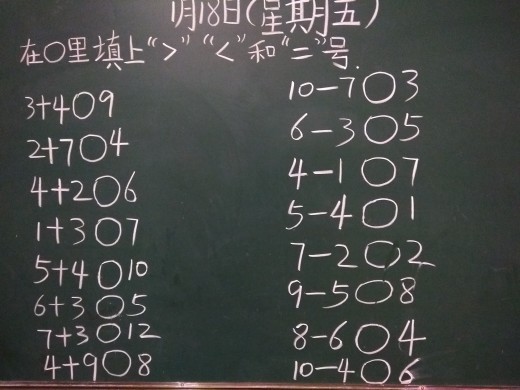 1月18日(星期五)
在○里填上“>”“<”和“=”号.
3+4○9
2+7○4
4+2○6
1+3○7
5+4○10
6+3○5
7+3○12
4+9○8
10-7○3
6-3○5
4-1○7
5-4○1
7-2○2
9-5○8
8-6○4
10-4○6